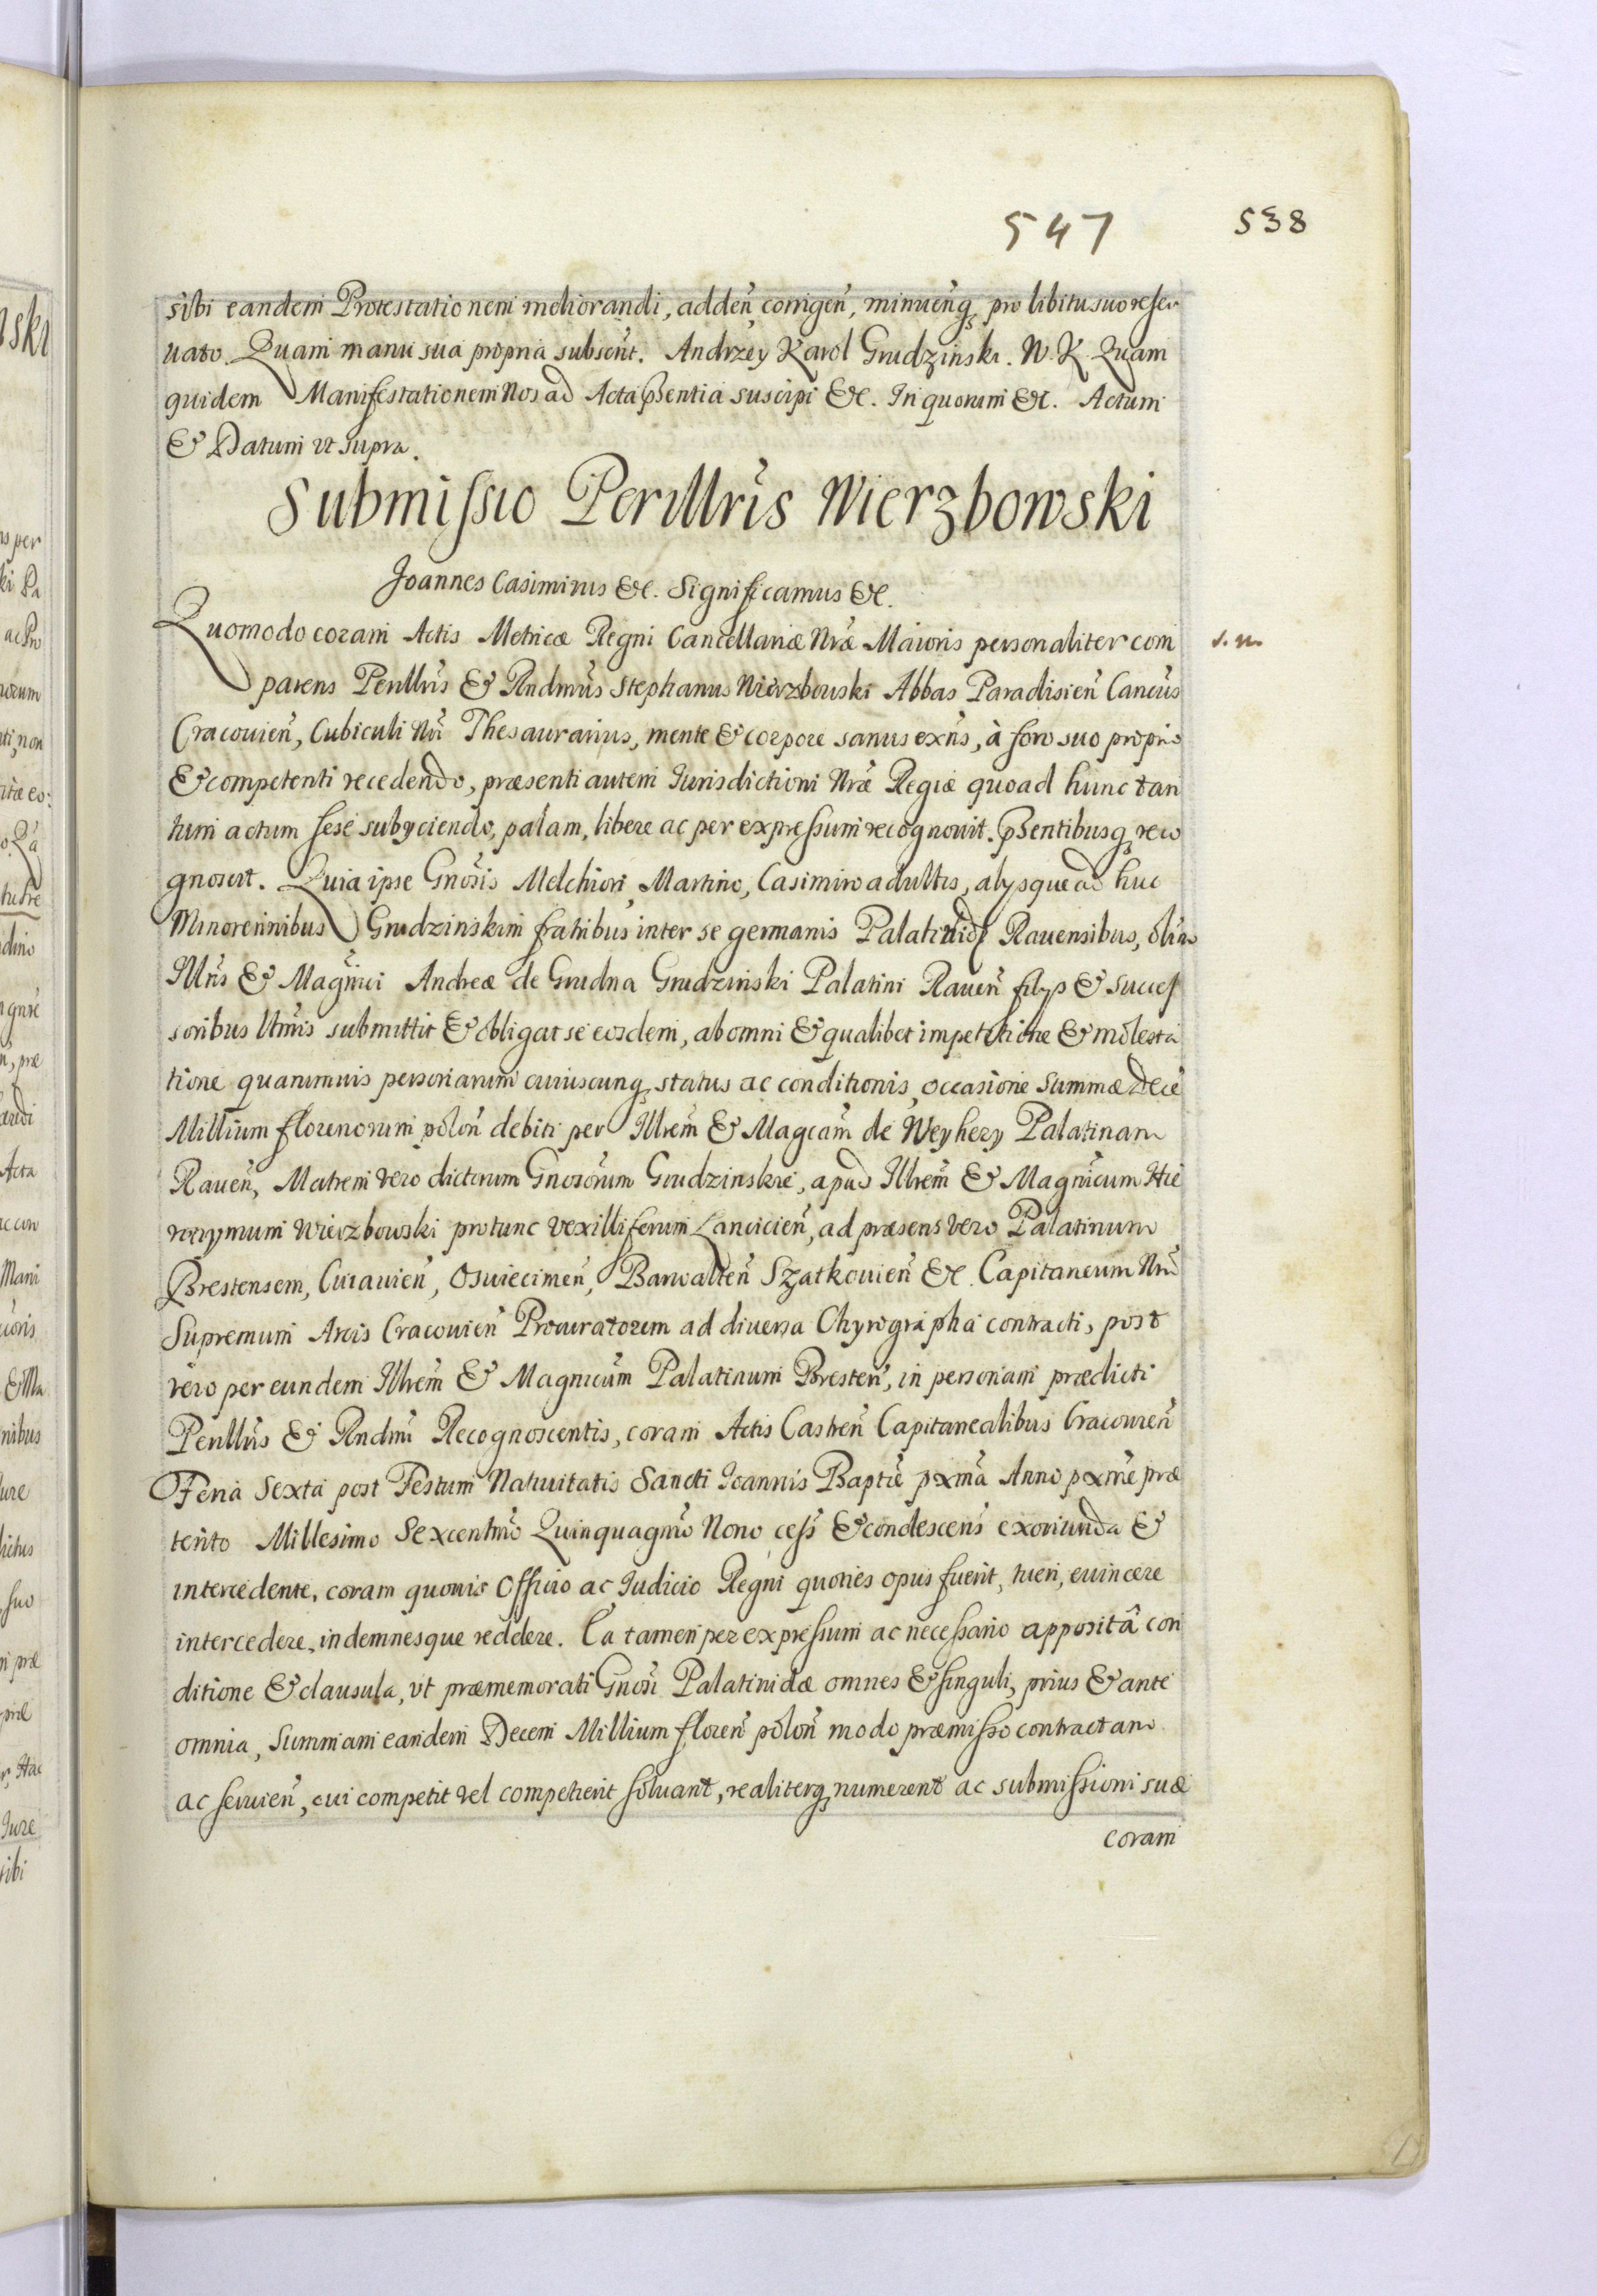 547 538
sibi eandem Protestationem meliorandi, adden̄ corrigen̄, minuenq̨ pro libitu suo reser
uato. Quam manu sua propria subscnt. Andrzey Karol Grudzinski. W. R. Quam
quidem Manifestationem Nos ad Acta pñsentia suscipi &c. In quorum &c. Actum
& Datum vt supra.
Submissio Perillris Wierzbowski
Joannes Casimirus &c. Significamus &c.
Quomodo coram Actis Metricæ Regni Cancellariæ Nræ Maioris personaliter com
parens Perillris & Rndmus Stephanus Wierzbowski Abbas Paradisien̄ Cancus
Cracouien̄, Cubiculi Nri Thesaurarius, mente & corpore sanus exns, à foro suo proprio
& competenti recedendo, præsenti autem Iurisdictioni Nræ Regiæ quoad hunc tan
tum actum sese subyciendo, palam, libere ac per expressum recognouit. pñsentibusq̨ reco
gnoscit. Quia ipse Gnosis Melchiori, Martino, Casimiro adultis, alysque ad huc
Minorennibus Grudzinskim fratribus inter se germanis Palatinid. Rauensibus, olim
Illris & Magnici Andreæ de Grudna Grudzinski Palatini Rauen̄ filys & succes
soribus ltmis submittit & obligat se eosdem, ab omni & qualibet impetitione & molesta
tione quarumuis personarum cuiuscunq̨ status ac conditionis, occasione Summæ Dece
Millium florenorum polon̄ debiti per Illrem & Magcam de Weyhery Palatinam
Rauen̄, Matrem vero dictorum Gnosorum Grudzinskie, apud Illrem & Magnicum Hie
ronymum Wierzbowski protunc vexilliferum Lancicien̄, ad præsens vero Palatinum
Brestensem, Cuiauien̄, Osuiecimen̄, Barwalten̄ Szatkouien̄ &c. Capitaneum Nrm
Supremum Arcis Cracouien̄ Procuratorem ad diuersa Chyrographa contracti, post
vero per eundem Illrem & Magnicum Palatinum Bresten̄, in personam prædicti
Perillris & Rndmi Recognoscentis, coram Actis Castren̄ Capitanealibus Cracouien̄
Feria Sexta post Festum Natiuitatis Sancti Ioannis Baptæ pxma Anno pxme præ
terito Millesimo Sexcentmo Quinquagmo Nono cess & condescens exoriunda &
intercedente, coram quouis Officio ac Iudicio Regni quoties opus fuerit, tueri, euincere
intercedere, indemnesque reddere. Ea tamen per expressum ac necessario apposita con
ditione & clausula, vt præmemorati Gnosi Palatinidæ omnes & singuli, prius & ante
omnia, Summam eandem Decem Millium floren̄ polon̄ modo præmisso contractam
ac seruien̄, cui competit vel competierit soluant, realiterq̨ numerent ac submissioni suæ
coram